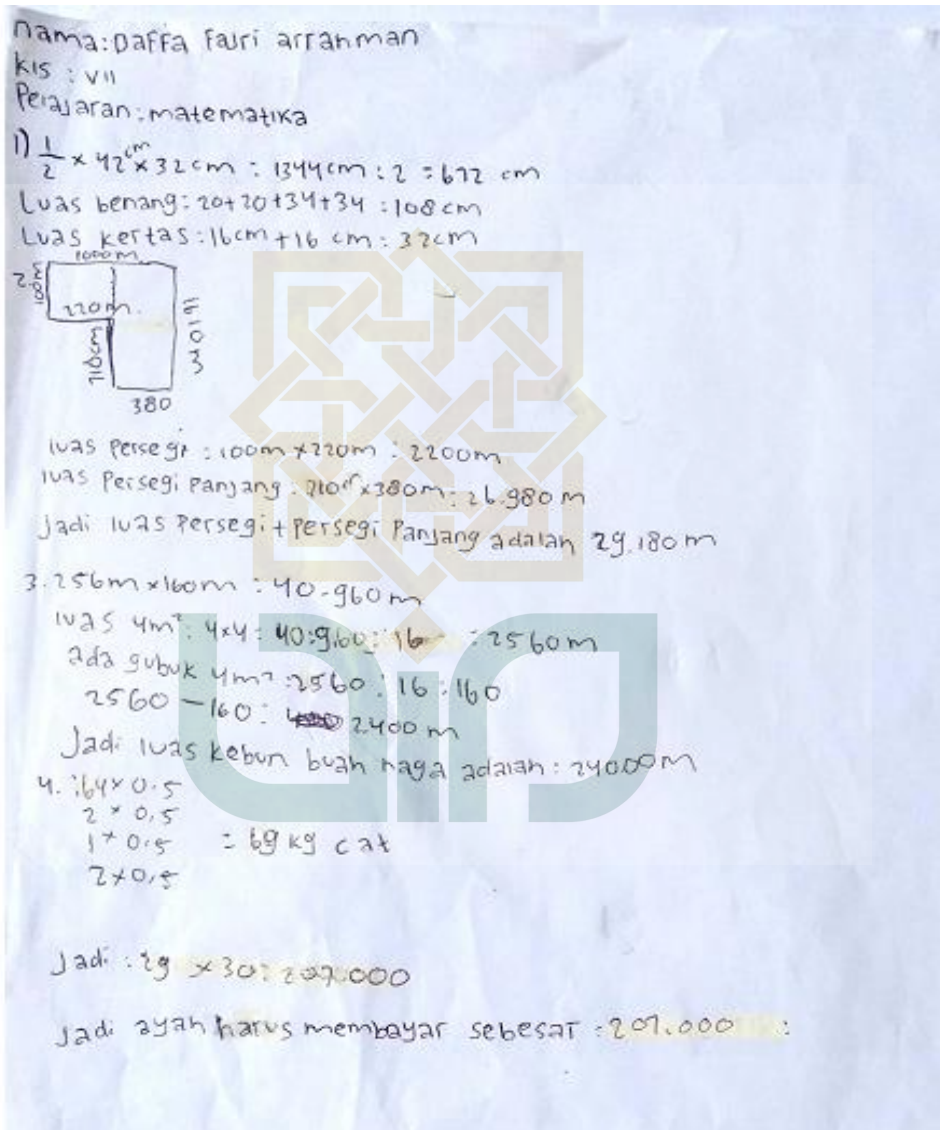 nama: Daffa Fajri arrahman
Kls : VII
Pelajaran: matematika
1) 1/2 × 42 cm × 32 cm : 1344 cm : 2 = 672 cm
Luas benang: 20+20+34+34 : 108 cm
Luas kertas: 16 cm + 16 cm : 32 cm
2.
1000 m
100m
220 m.
710 cm
1610 m
380
luas persegi : 100m × 220m : 2200m
luas Persegi Panjang : 710 × 380m : 26.980 m
Jadi luas Persegi + Persegi Panjang adalah 29.180 m
3. 256m × 160m : 40.960 m
luas 4m² : 4×4 : 40.960 : 16 : 2560 m
ada gubuk 4m² : 2560 : 16 : 160
2560 - 160 : 2400 m
Jadi luas kebun buah naga adalah : 24000 m
4. : 64 × 0.5
2 × 0,5
1 × 0.5 = 69 kg cat
2 × 0,5
Jadi : 29 × 30 : 207.000
Jadi ayah harus membayar sebesar : 207.000 :